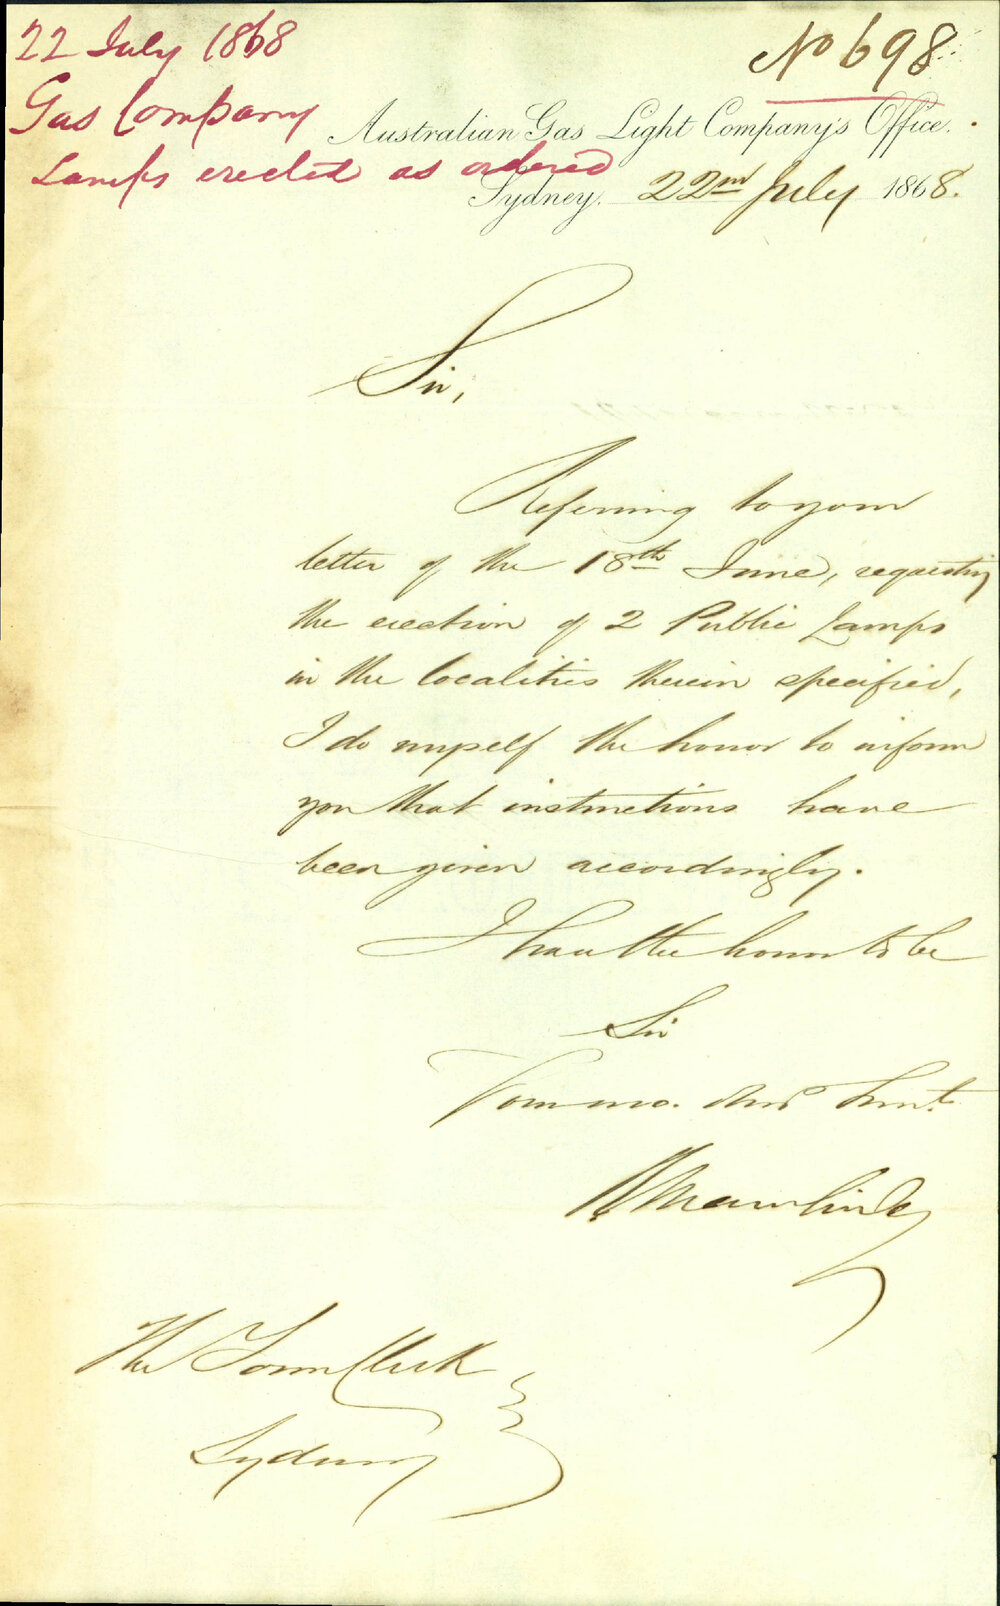 22 July 1868
No 698
Gas Company
Lamps erected as ordered
Australian Gas Light Company's Office.
Sydney, 22nd July 1868.
Sir,
Referring to your
letter of the 18th June, requesting
the erection of 2 Public Lamps
in the localities therein specified,
I do myself the honor to inform
you that instructions have
been given accordingly.
I have the honor to be
Sir
Your mo. Obed Servt.
The Town Clerk
Sydney